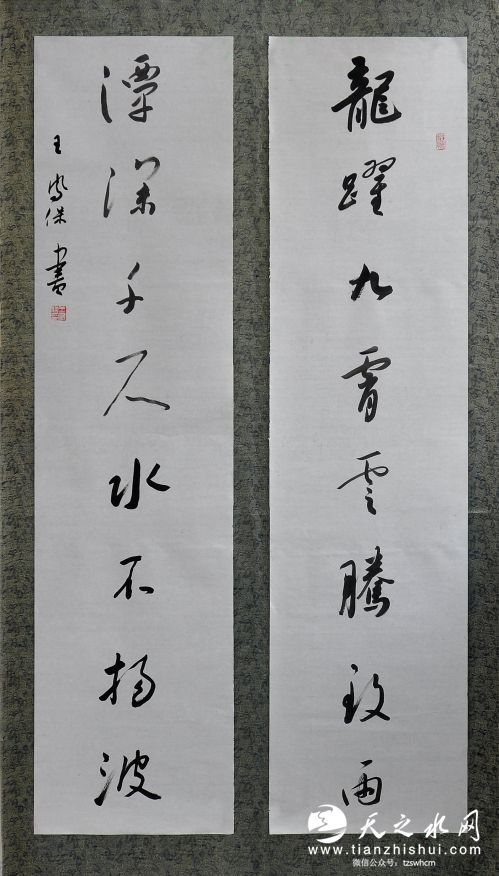 龍躍九霄雲騰致雨
潭深千尺水不揚波
王 保書
天之水网
www.tianzhishui.com
微信公众号: tzswhcm